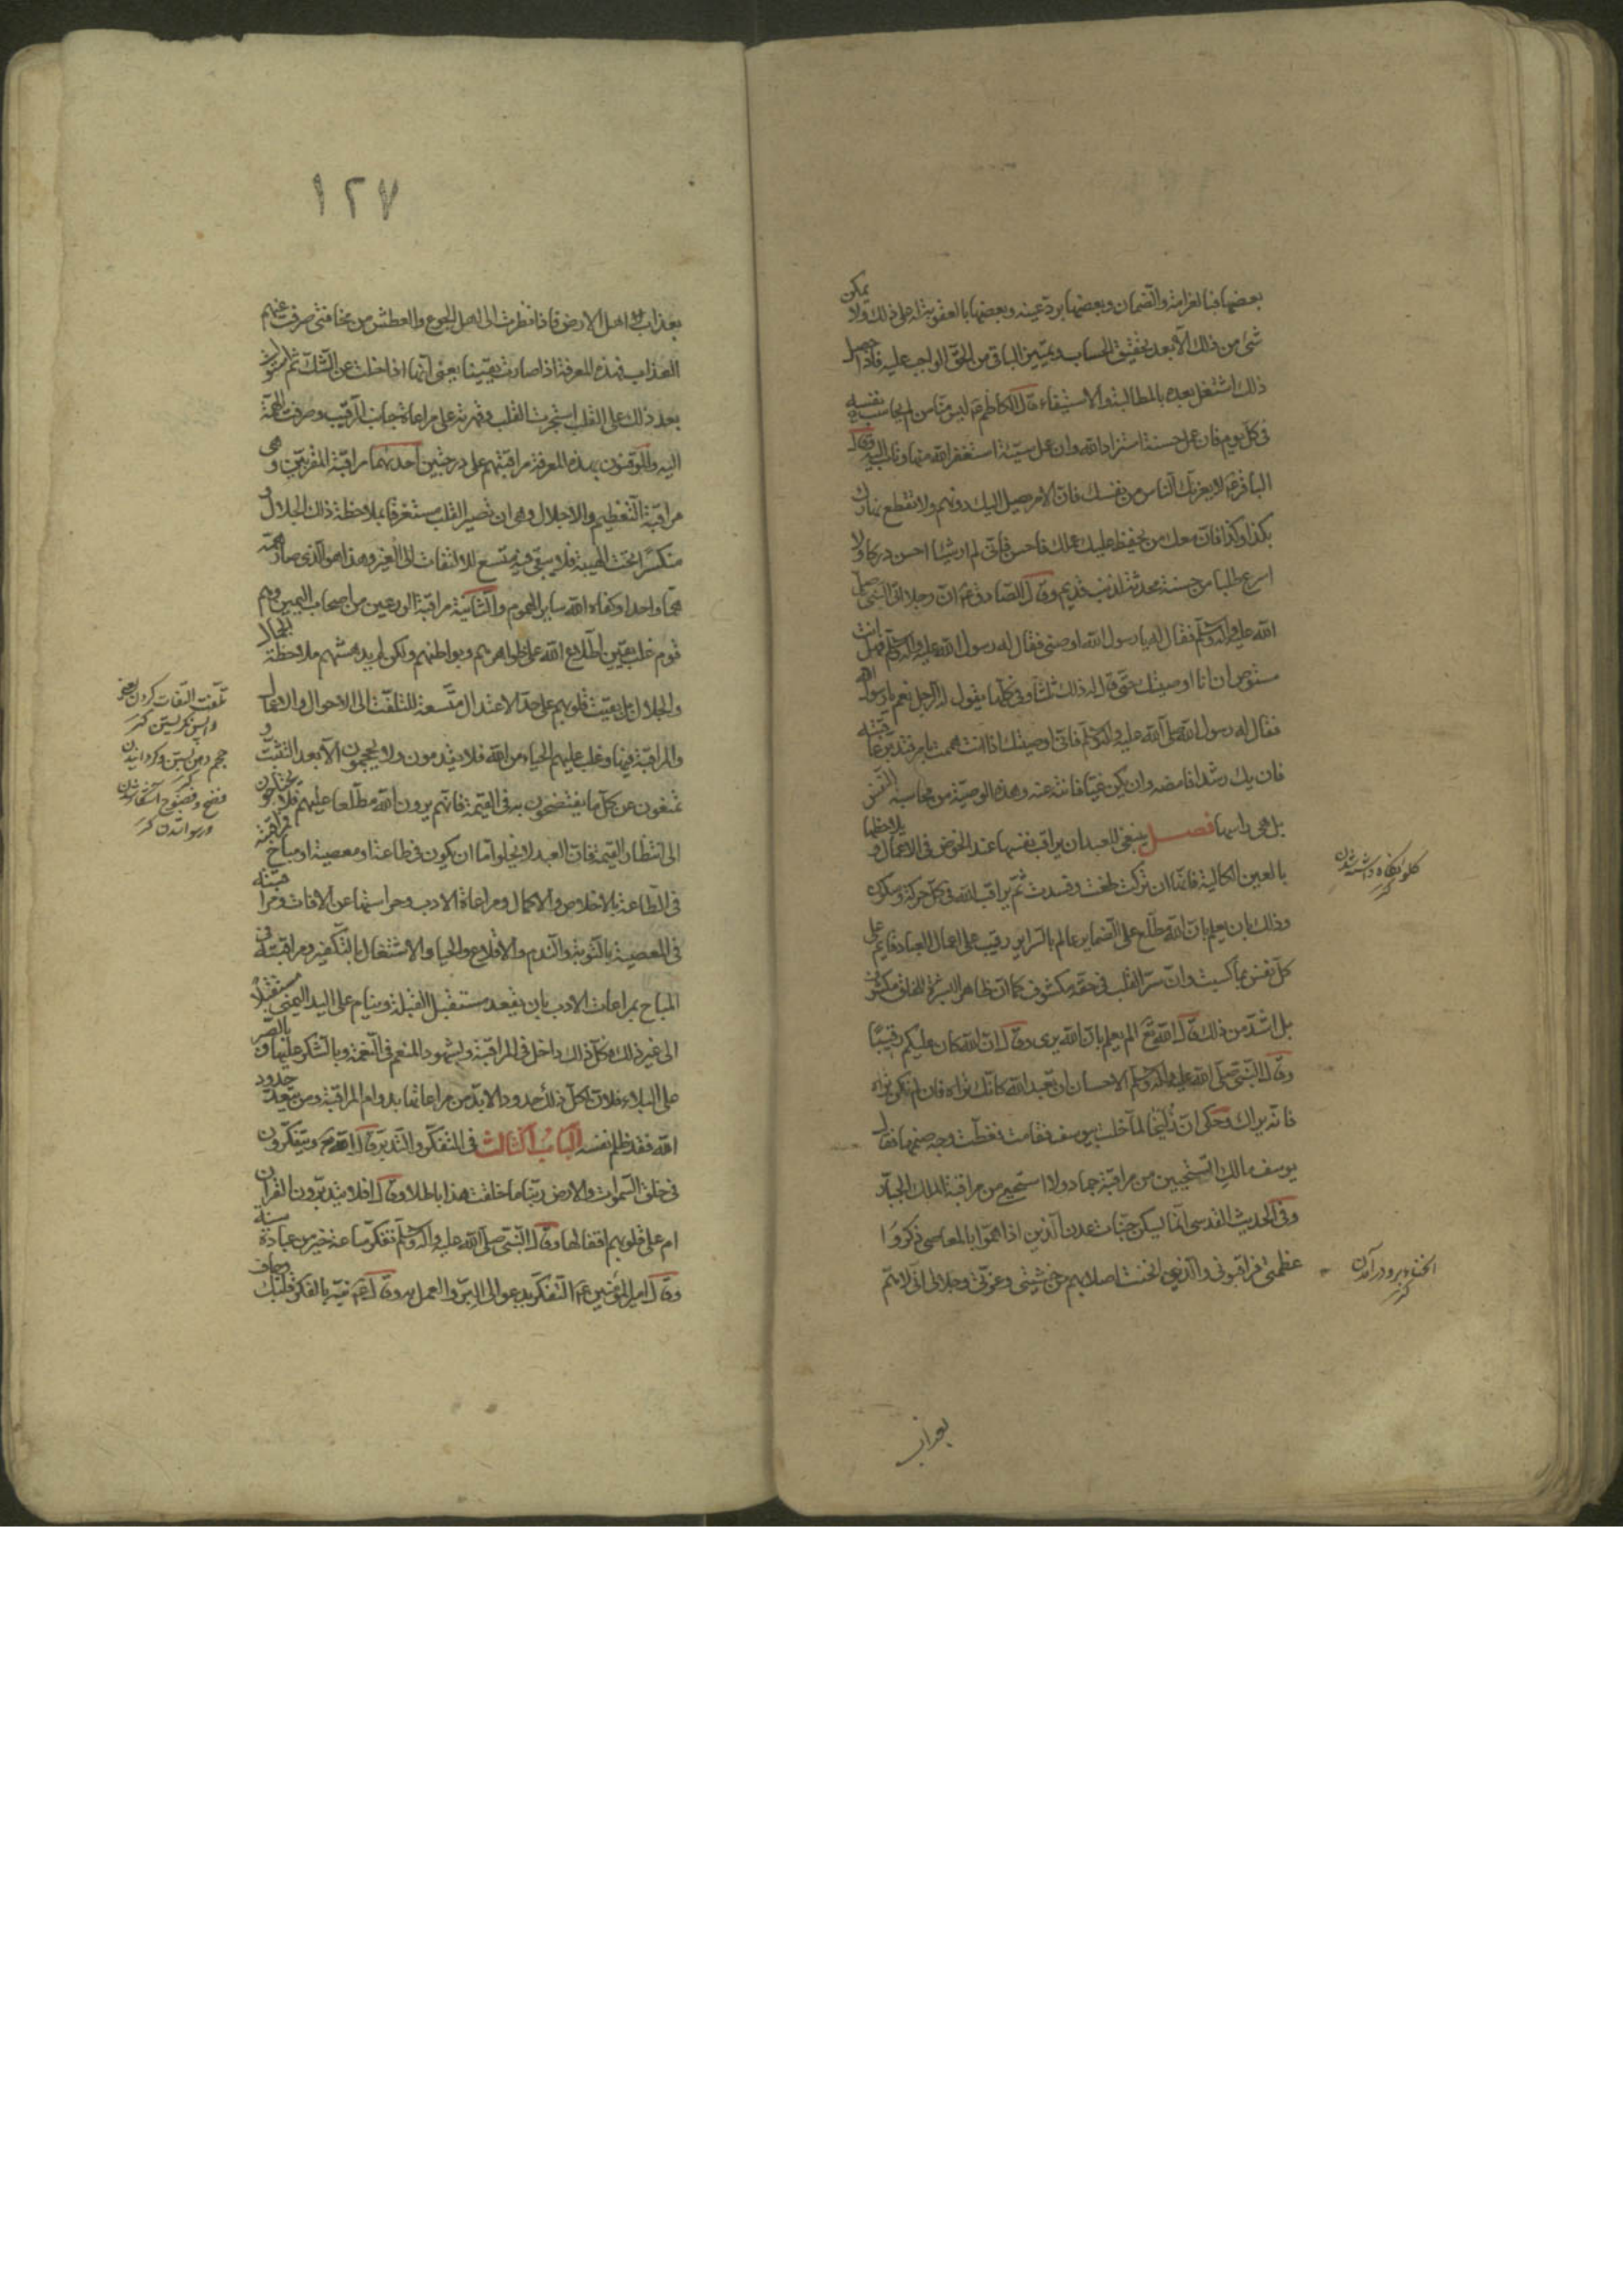 بعضها فبالغرامة والضمان وبعضها بردّ عينه وبعضها بالعقوبة له على ذلك ولا يمكن
شئ من ذلك الّا بعد تحقيق الحساب وتمييز الباقى من الحقّ الواجب عليه فاذا حصل
ذلك اشتغل بعده بالمطالبة والاستيفاء قال الكاظم ع ليس منّا من لم يحاسب نفسه
فى كلّ يوم فان عمل حسنة استزاد الله وان عمل سيّئة استغفر الله منها وتاب اليه وقال
الباقر ع لا يغرنّك النّاس من نفسك فانّ الامر يصل اليك دونهم ولا تقطع نهارك
بكذا وكذا فانّ معك من يحفظ عليك عملك فاحسن فانّى لم ار شيئا احسن دركا ولا
اسرع طلبا من حسنة محدثة لذنب قديم وقال الصّادق ع انّ رجلا اتى النّبى صلّى
الله عليه واله وسلّم فقال له يا رسول الله اوصنى فقال له رسول الله صلّى الله عليه واله وسلّم فهل انت
مستوص ان انا اوصيتك حتّى قال له ذلك ثلثا وفى كلّها يقول له الرّجل نعم يا رسول الله
فقال له رسول الله صلّى الله عليه واله وسلّم فانّى اوصيك اذا انت هممت بامر فتدبّر عاقبته
فان يك رشدا فامضه وان يكن غيّا فانته عنه وهذه الوصيّة من محاسبة النّفس
بل هى راسها فصل ينبغى للعبد ان يراقب نفسها عند الخوض فى الاعمال و يلاحظها
بالعين الكالئة فانّها ان تركت طغت وفسدت ثمّ يراقب الله فى كلّ حركة وسكون
وذلك بان يعلم بانّ الله مطّلع على الضماير عالم بالسّراير رقيب على اعمال العباد قائم على
كلّ نفس بما كسبت وانّ سرّ القلب فى حقّه مكشوف كما انّ ظاهر البشرة للخلق مكشوف
بل اشدّ من ذلك قال الله تع الم يعلم بانّ الله يرى وقال انّ الله كان عليكم رقيبًا
وقال النّبى صلّى الله عليه واله وسلّم الاحسان ان تعبد الله كانّك تراه فان لم تكن تراه
فانّه يراك وحكى انّ زليخا لمّا خلت بيوسف فقامت فغطّت وجه صنمها فقال
يوسف مالك اتستحيين من مراقبة جماد ولا استحيى من مراقبة الملك الجبّار
وفى الحديث القدسى انّما يسكن جنّات عدن الّذين اذا همّوا بالمعاصى ذكروا
عظمتى فراقبونى والّذين انحنت اصلابهم من خشيتى وعزّتى وجلالى انّى لاهمّ
بعذاب
كلو نگاه داشته شدن
كنز
انحناء بزو در آمدن
كنز
١٢٧
بعذاب اهل الارض فاذا نظرت الى اهل الجوع والعطش من مخافتى صرفت عنهم
العذاب فهذه المعرفة اذا صارت يقينا يعنى انّها اذا خلت عن الشّك ثمّ استولت
بعد ذلك على القلب استجرت القلب وقهرته على مراعاة جانب الرّقيب وصرفت الهمّة
اليه والموقنون بهذه المعرفة مراقبتهم على درجتين احدهما مراقبة المقرّبين وهى
مراقبة التّعظيم والاجلال وهى ان تصير القلب مستغرقا بملاحظة ذلك الجلال و
منكسرًا تحت الهيبة فلا يبقى فيه متّسع للالتفات الى الغير وهذا هو الّذى صار همّه
همّا واحدا وكفاه الله ساير الهموم والثّانية مراقبة الورعين من اصحاب اليمين وهم
قوم غلب يقين اطّلاع الله على ظواهرهم وبواطنهم ولكن لم يدهشهم ملاحظة الجمال
والجلال بل بقيت قلوبهم على حدّ الاعتدال متّسعة للتلفّت الى الاحوال والاعمال
والمراقبة فيها وغلب عليهم الحياء من الله فلا يقدمون ولا يحجمون الّا بعد التّثبّت و
يمتنعون عن كلّ ما يفتضحون به فى القيمة فانّهم يرون الله مطّلعا عليهم فلا يحتاجون
الى انتظار القيمة فانّ العبد لا يخلو امّا ان يكون فى طاعة او معصية او مباح فمراقبته
فى الطّاعة بالاخلاص والاكمال ومراعاة الادب وحراستها عن الافات ومراقبته
فى المعصية بالتّوبة والنّدم والاقلاع والحيا والاشتغال بالتّكفير ومراقبته فى
المباح بمراعات الادب بان يقعد مستقبل القبلة وينام على اليد اليمنى مستقبلا
الى غير ذلك فكلّ ذلك داخل فى المراقبة وبشهود المنعم فى النّعمة وبالشّكر عليها و بالصّبر
على البلاء فلانّ لكلّ ذلك حدودا لا بدّ من مراعاتها بدوام المراقبة ومن يتعدّ حدود
الله فقد ظلم نفسه الباب الثّالث فى التفكّر والتّدبّر قال الله تع ويتفكّرون
فى خلق السّموات والارض ربّنا ما خلقت هذا باطلا وقال افلا يتدبّرون القران
ام على قلوب اقفالها وقال النّبى صلّى الله عليه واله وسلّم تفكّر ساعة خير من عبادة سنة
وقال امير المؤمنين ع التّفكّر يدعو الى البرّ والعمل به وقال ع نبّه بالفكر قلبك وجاف
تلفّت التفات كردن يعنى
واپس نگريستن كنز
حجم دهن بستن وگردانيدن
كنز
فضح وفضوح آشكارا شدن
ورسوا شدن كنز